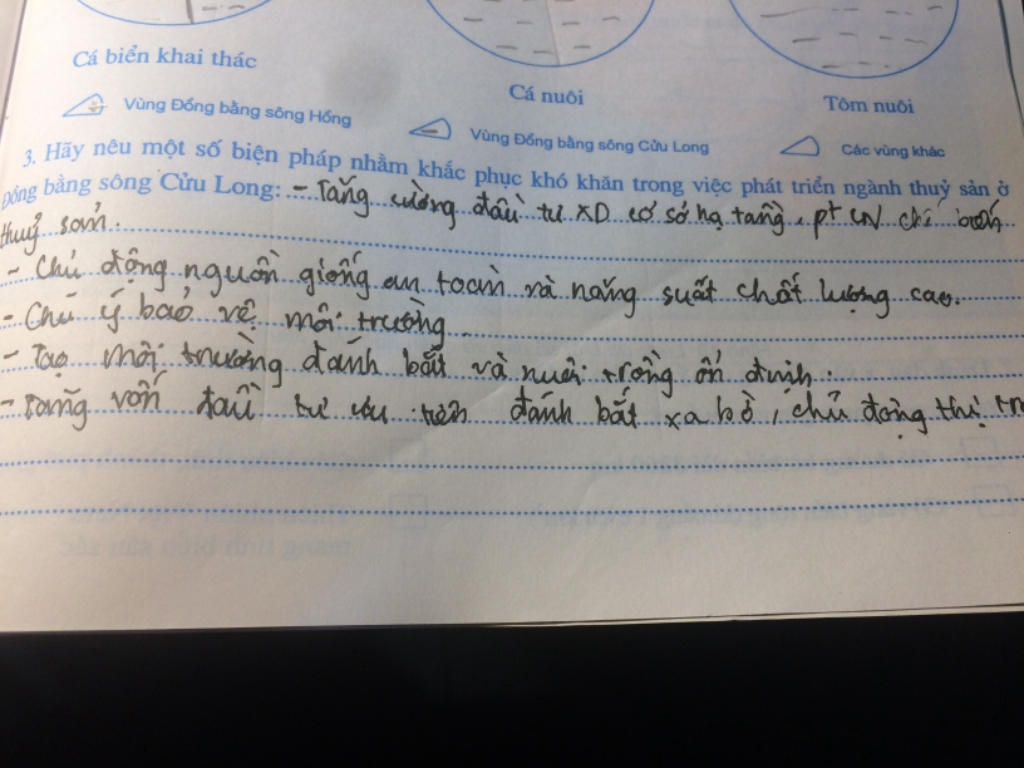 Cá biển khai thác
Cá nuôi
Tôm nuôi
Vùng Đồng bằng sông Hồng
Vùng Đồng bằng sông Cửu Long
Các vùng khác
3. Hãy nêu một số biện pháp nhằm khắc phục khó khăn trong việc phát triển ngành thuỷ sản ở
Đồng bằng sông Cửu Long: - Tăng cường đầu tư XD cơ sở hạ tầng, pt CN chế biến
thuỷ sản.
- Chủ động nguồn giống an toàn và năng suất chất lượng cao.
- Chú ý bảo vệ môi trường
- Tạo môi trường đánh bắt và nuôi trồng ổn định.
- Tăng vốn đầu tư ưu tiên đánh bắt xa bờ, chủ động thị